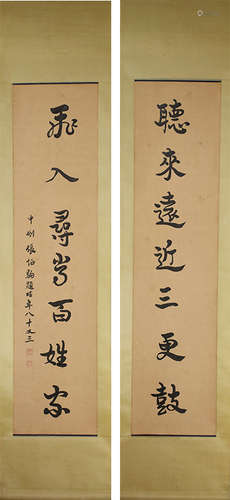 聽來遠近三更鼓
飛入尋常百姓家
中州張伯駒題時年八十又三